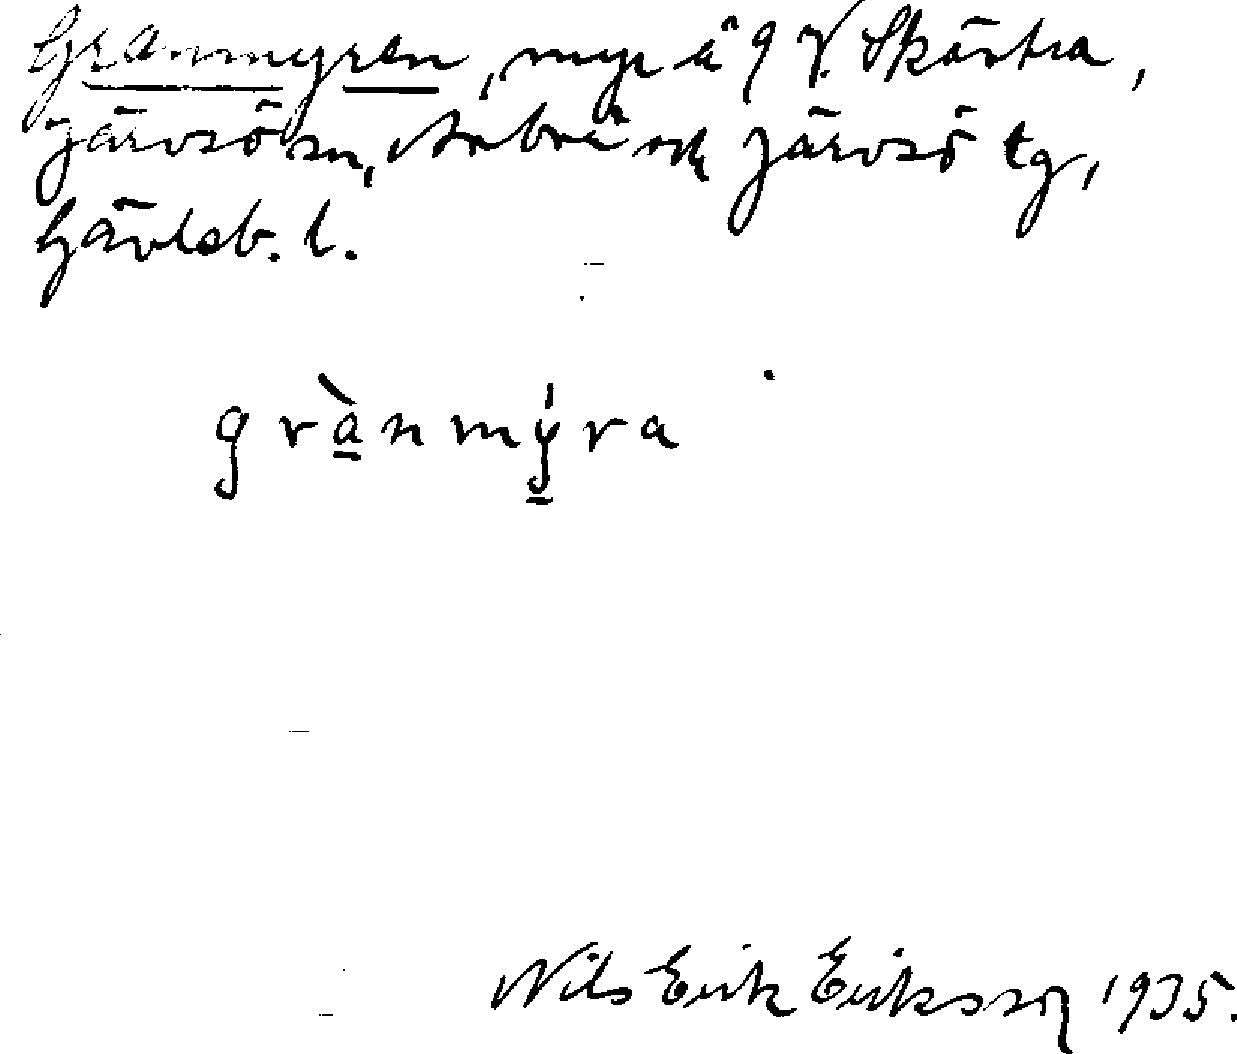 Granmyren, myr å g V. Skästra,
Järvsö sn, Arbrå och Järvsö tg,
Gävleb. l.
grànmýra
Nils Erik Eriksson 1935.